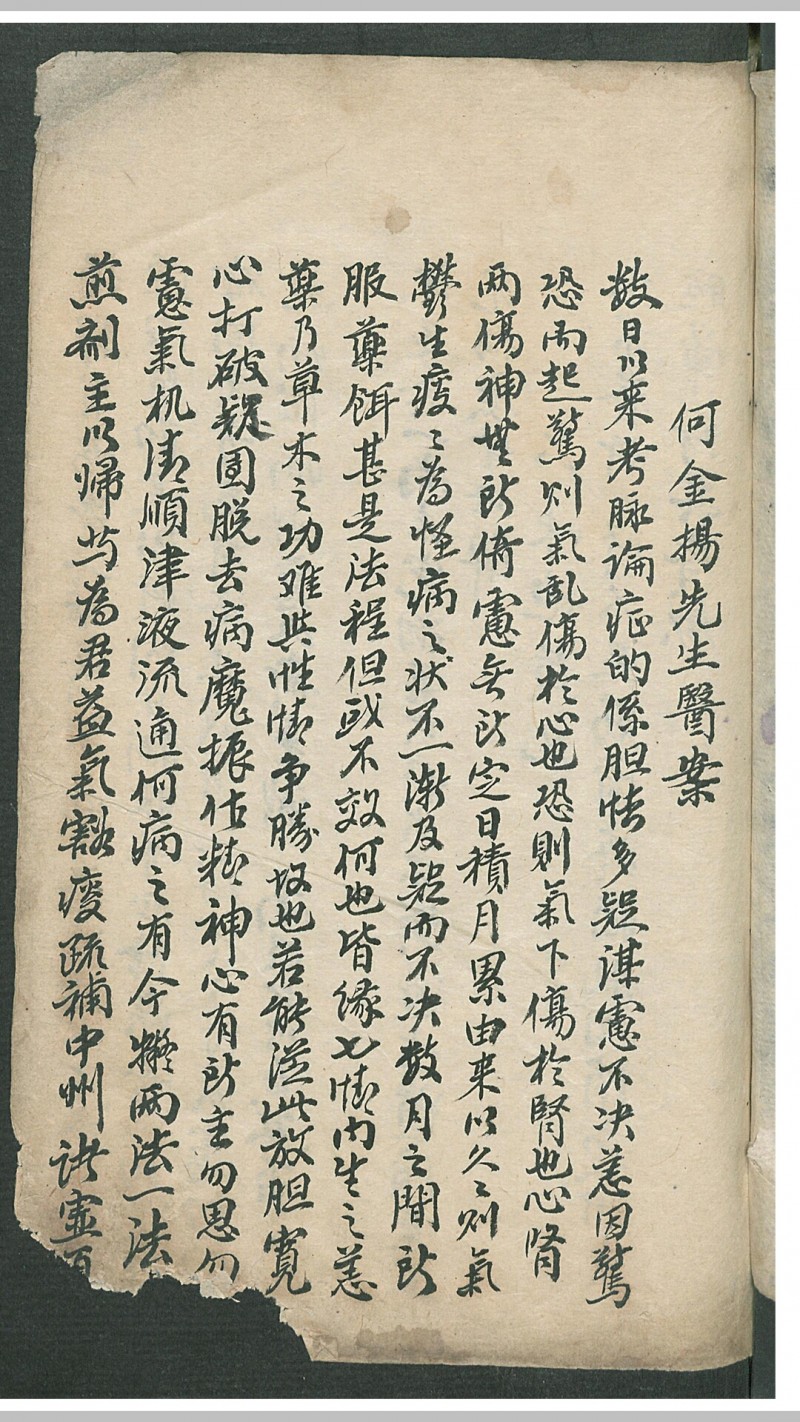 何金揚先生醫案
数日以来考脉論症的係胆怯多疑謀慮不决恙因驚
恐而起驚则氣乱傷於心也恐則氣下傷於腎也心腎
两傷神無所倚慮無所定日積月累由来以久々则氣
鬱生痰々為怪病之状不一漸及疑而不决数月之間所
服藥餌甚是法程但或不效何也皆缘七情内生之恙
藥乃草木之功难與性情争勝故也若能従此放胆寛
心打破疑团脱去病魔振作精神心有所主勿思勿
慮氣机清順津液流通何病之有今擬两法一法
煎劑主以帰芍為君益氣豁痰疏補中州